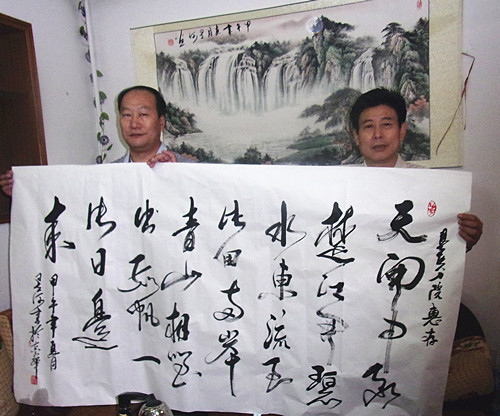 惠存
天门中断
楚江开碧
水東流至
此回两岸
青山相對
出孤帆一
片日邊
来
甲午年五月